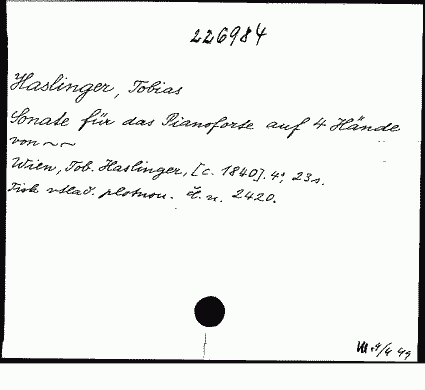 226984
Haslinger, Tobias
Sonate für das Pianoforte auf 4 Hände
von ~~
Wien, Tob. Haslinger, [c. 1840]. 4°, 23 s.
Tisk vtlač. plotnou. č. n. 2420.